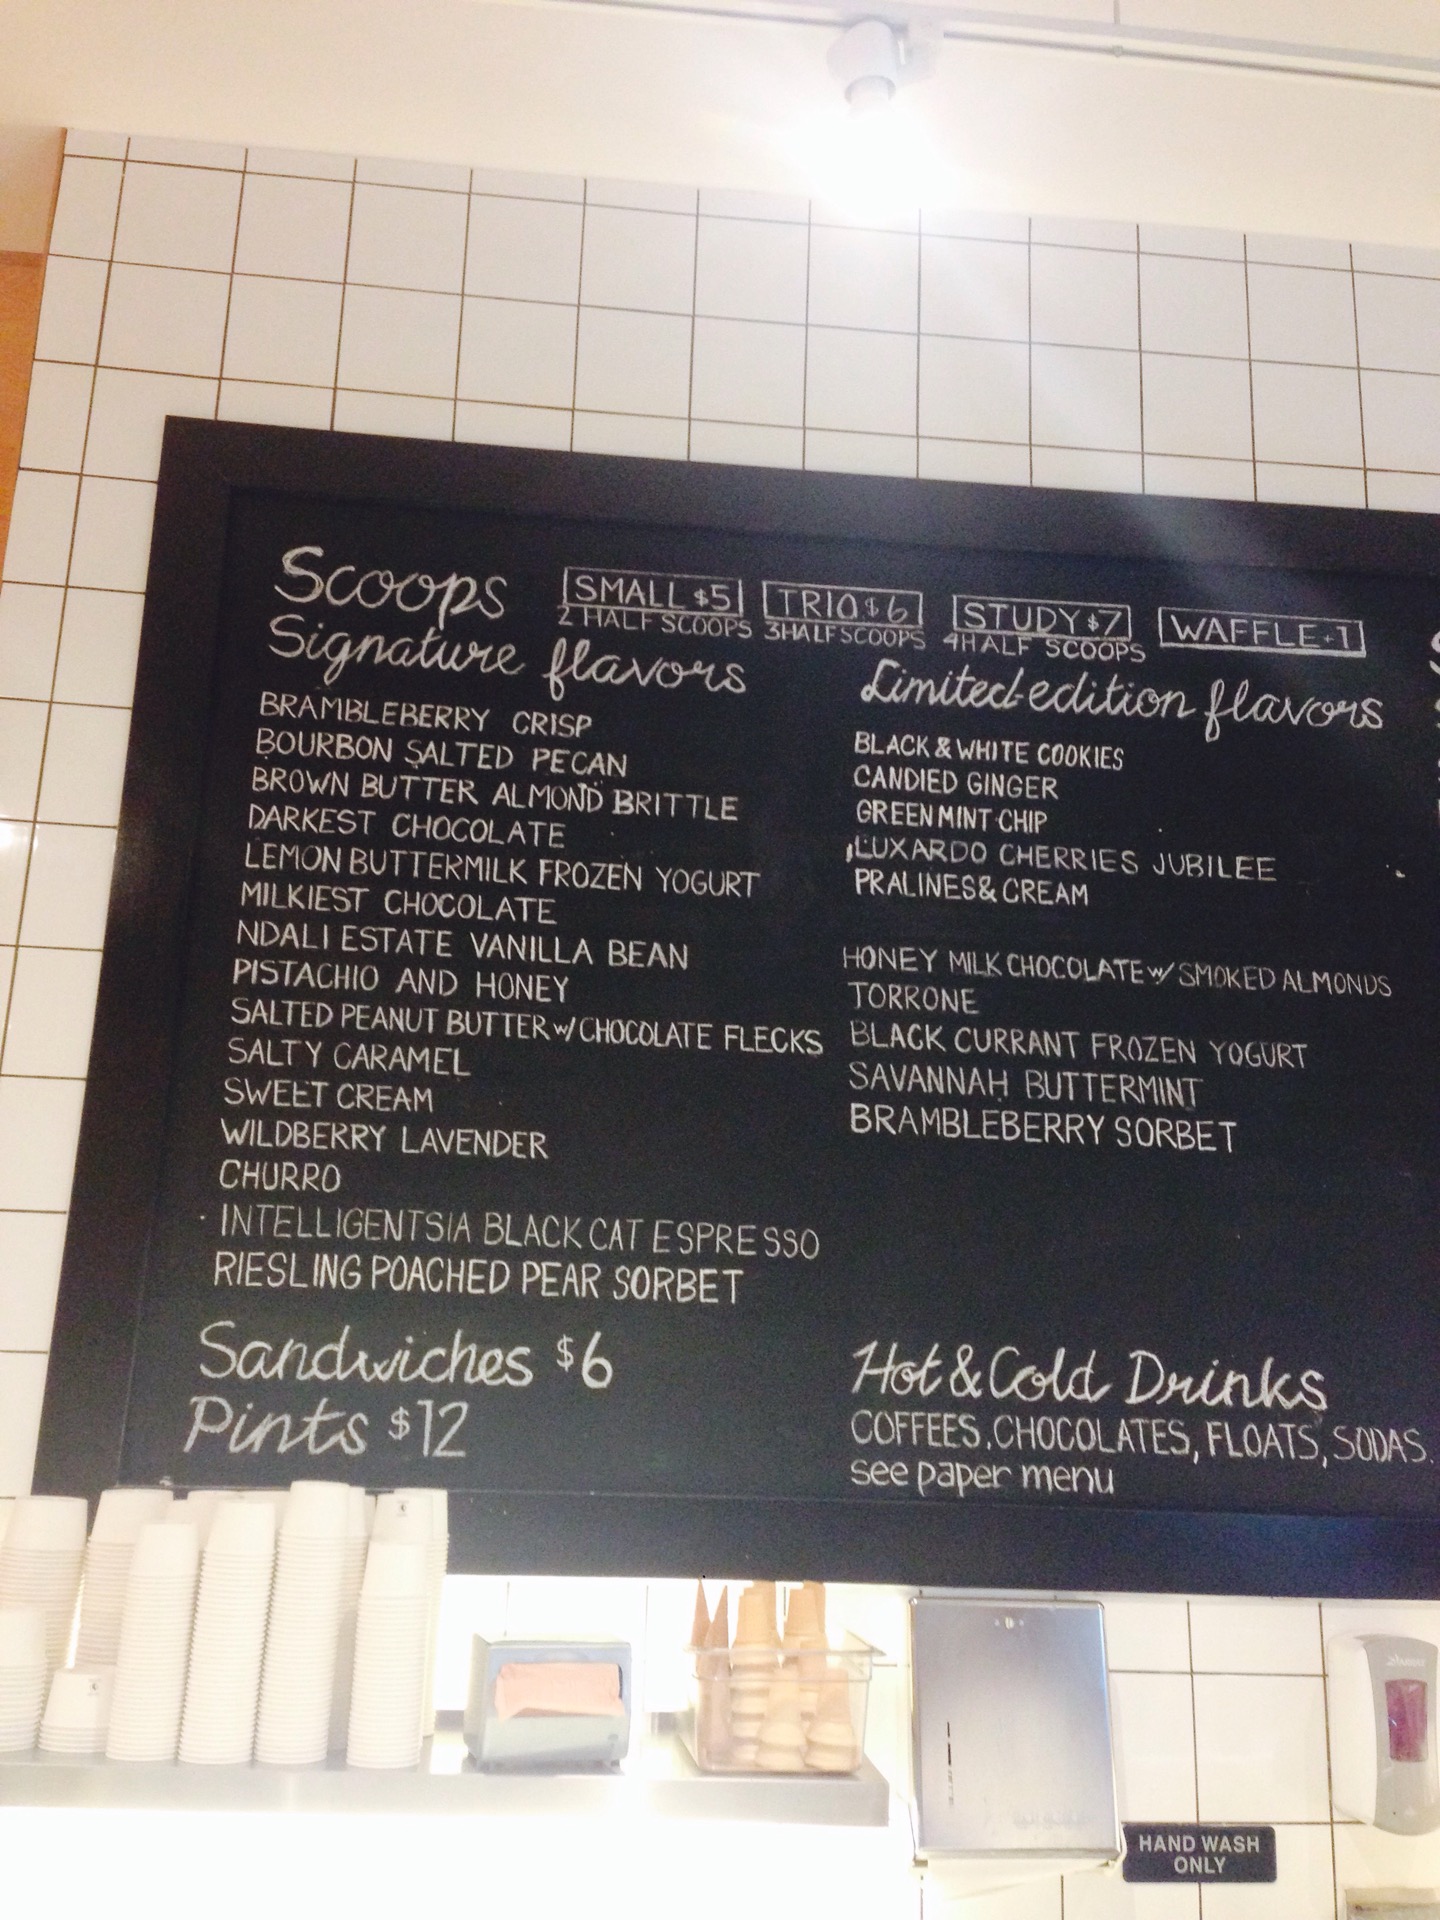 Scoops
SMALL $5
2 HALF SCOOPS
TRIO $6
3 HALF SCOOPS
STUDY $7
4 HALF SCOOPS
WAFFLE +1
Signature flavors
BRAMBLEBERRY CRISP
BOURBON SALTED PECAN
BROWN BUTTER ALMOND BRITTLE
DARKEST CHOCOLATE
LEMON BUTTERMILK FROZEN YOGURT
MILKIEST CHOCOLATE
NDALI ESTATE VANILLA BEAN
PISTACHIO AND HONEY
SALTED PEANUT BUTTER w/ CHOCOLATE FLECKS
SALTY CARAMEL
SWEET CREAM
WILDBERRY LAVENDER
CHURRO
INTELLIGENTSIA BLACK CAT ESPRESSO
RIESLING POACHED PEAR SORBET
Limited-edition flavors
BLACK & WHITE COOKIES
CANDIED GINGER
GREEN MINT CHIP
LUXARDO CHERRIES JUBILEE
PRALINES & CREAM
HONEY MILK CHOCOLATE w/ SMOKED ALMONDS
TORRONE
BLACK CURRANT FROZEN YOGURT
SAVANNAH BUTTERMINT
BRAMBLEBERRY SORBET
Sandwiches $6
Pints $12
Hot & Cold Drinks
COFFEES, CHOCOLATES, FLOATS, SODAS.
see paper menu
HAND WASH
ONLY